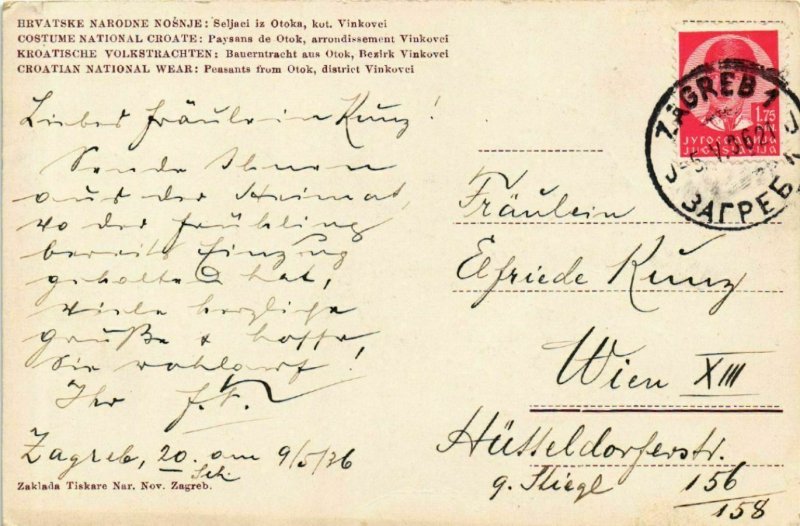 HRVATSKE NARODNE NOŠNJE: Seljaci iz Otoka, kot. Vinkovci
COSTUME NATIONAL CROATE: Paysans de Otok, arrondissement Vinkovci
KROATISCHE VOLKSTRACHTEN: Bauerntracht aus Otok, Bezirk Vinkovci
CROATIAN NATIONAL WEAR: Peasants from Otok, district Vinkovci
Liebes Fräulein Kunz!
Sende Ihnen
aus der Heimat,
wo der Frühling
bereits Einzug
gehalten hat,
viele herzliche
Grüße & hoffe,
Sie wohlauf!
Ihr
Zagreb, 20. am 9/5/36
Zaklada Tiskare Nar. Nov. Zagreb.
1.75
ZAGREB 1
ЗАГРЕБ
Fräulein
Elfriede Kunz
Wien XIII
Hütteldorferstr.
9. Stiege 156
158